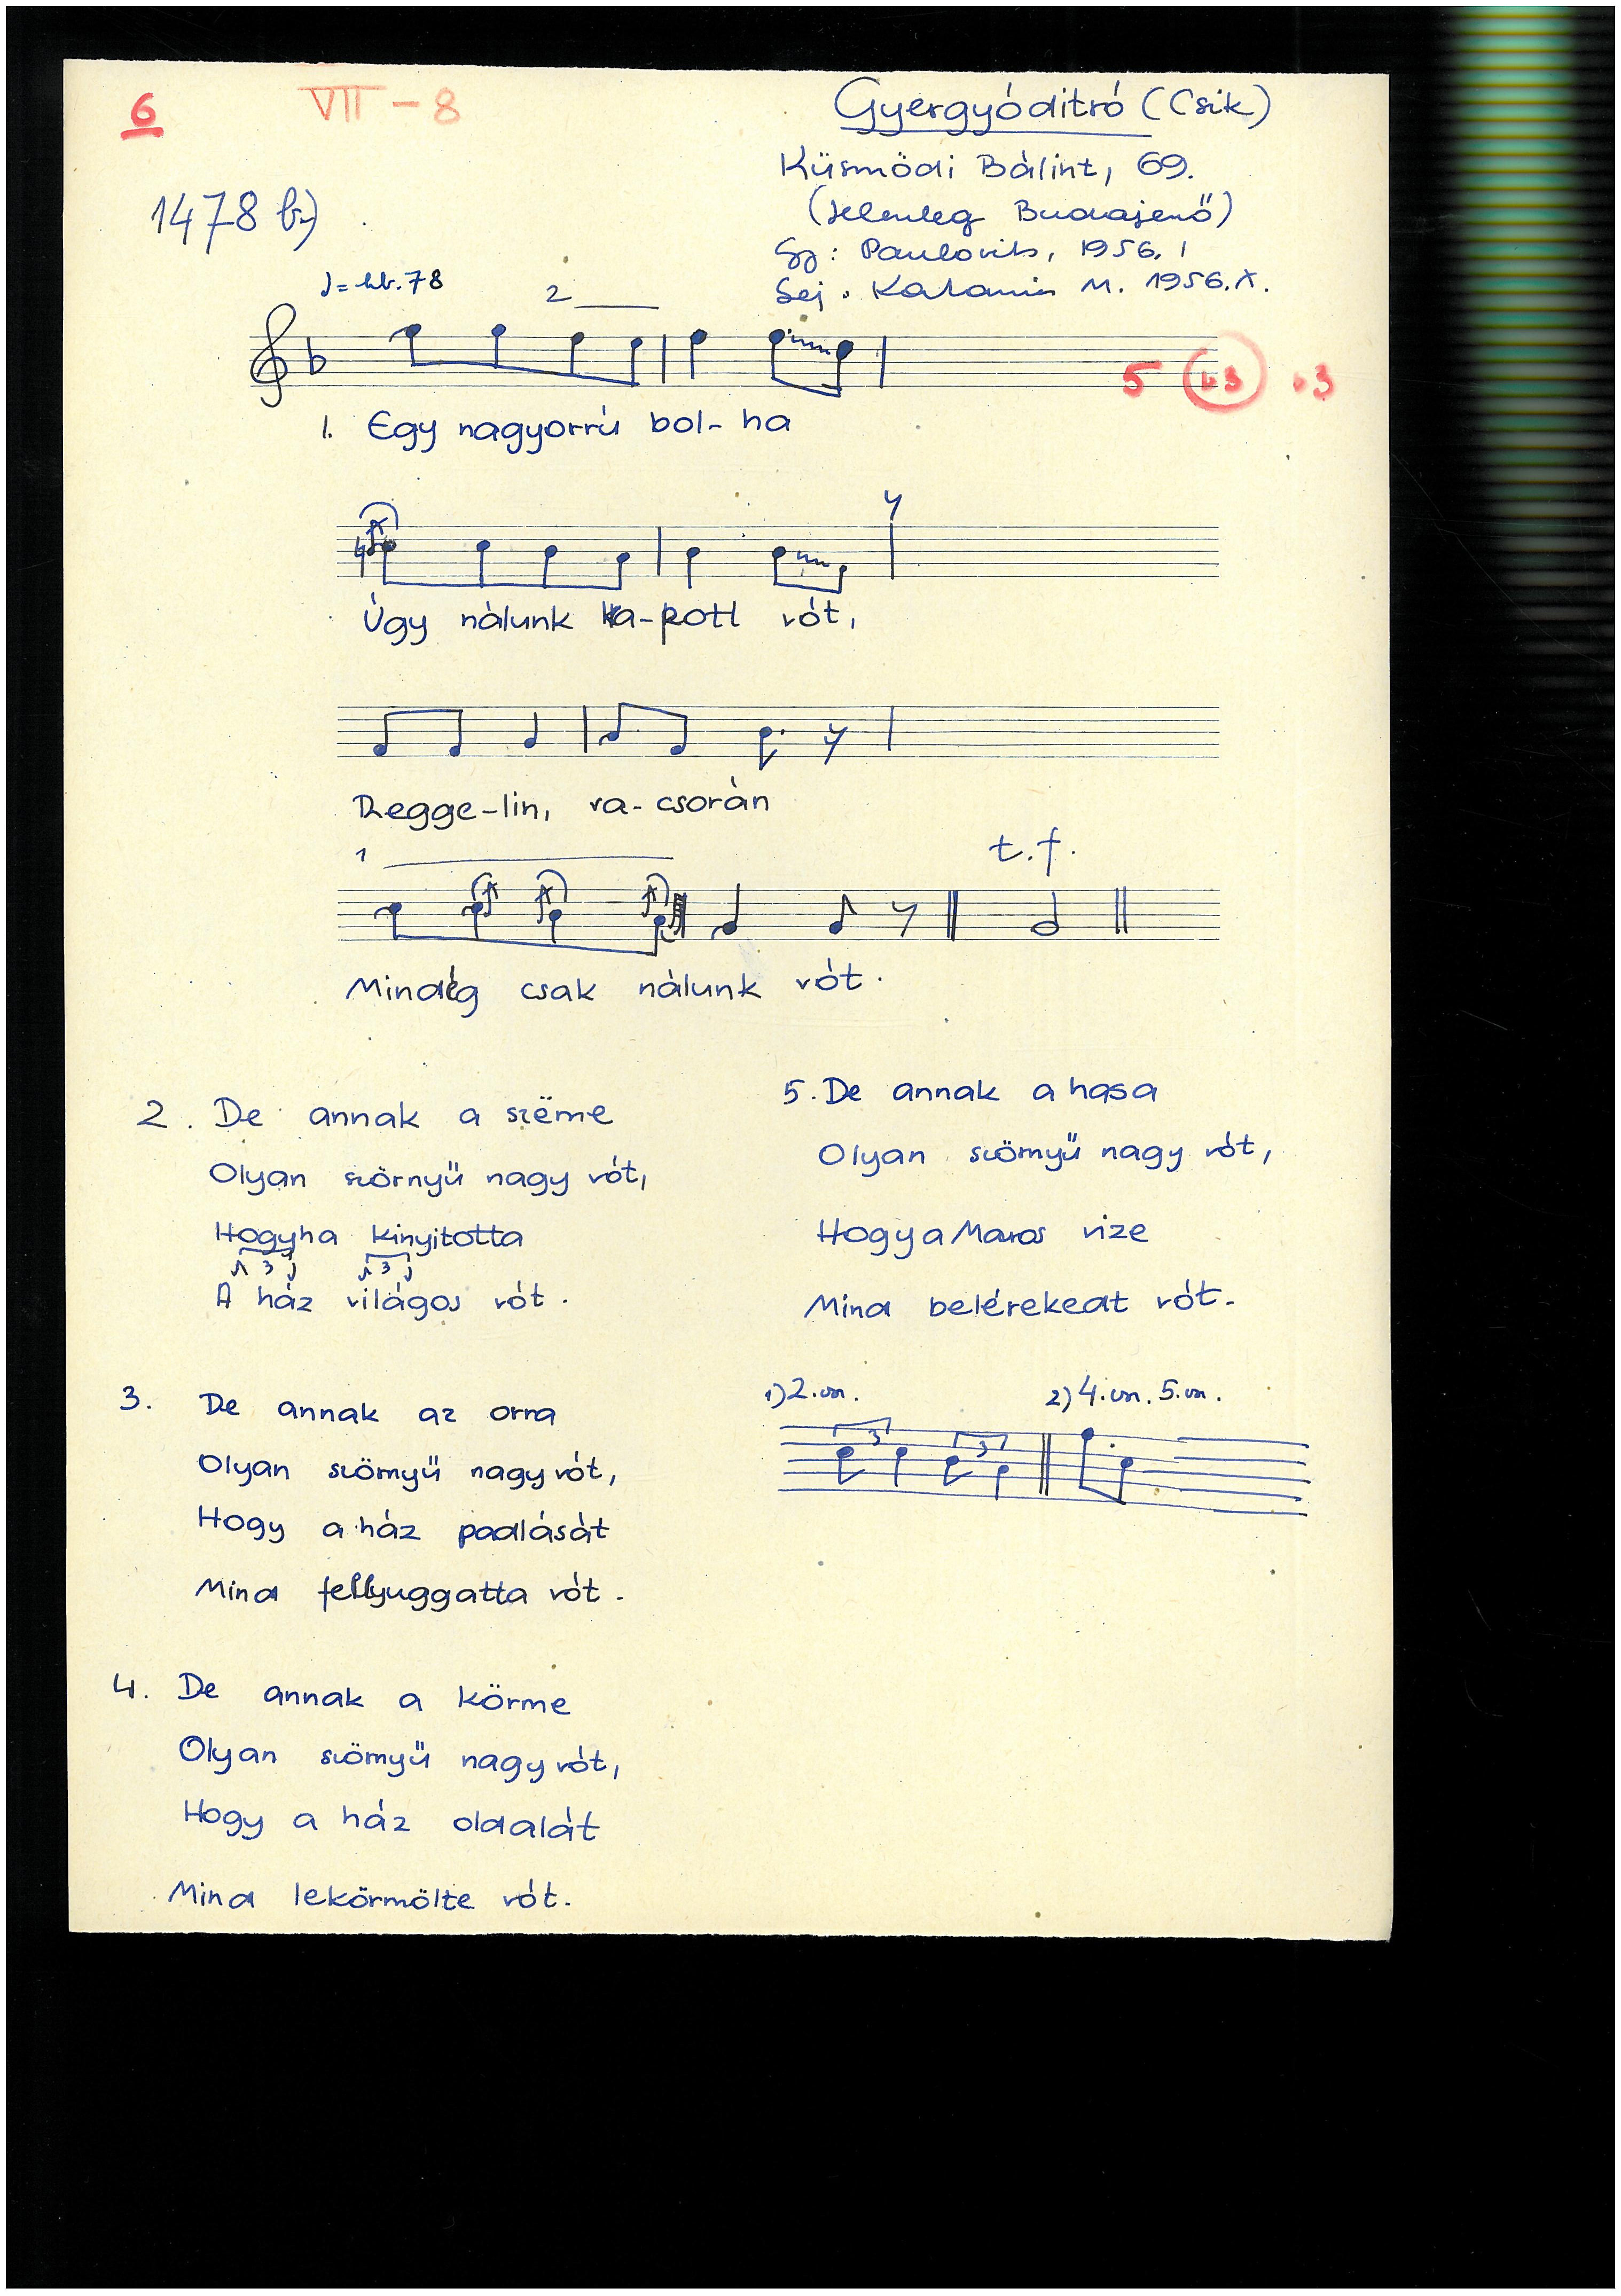 6
VII - 8
Gyergyóditró (Csik)
Küsmödi Bálint, 69.
(Jelenleg Budajenő)
1478 b)
Gy: Paulovits, 1956. I
Lej. M. 1956. X.
♩= kb. 78
2
5 (b3) b3
1. Egy nagyorrú bol-ha
Úgy nálunk ka-pott vót,
Regge-lin, va-csorán
1
t.f.
Mindég csak nálunk vót.
2. De annak a szëme
Olyan szörnyű nagy vót,
Hogyha kinyitotta
3 3
A ház világos vót.
3. De annak az orra
Olyan szörnyű nagy vót,
Hogy a ház padlását
Mind fellyuggatta vót.
4. De annak a körme
Olyan szörnyű nagy vót,
Hogy a ház oldalát
Mind lekörmölte vót.
5. De annak a hasa
Olyan szörnyű nagy vót,
Hogy a Maros vize
Mind belérekedt vót.
1) 2. vsz. 2) 4. vsz. 5. vsz.
3 3